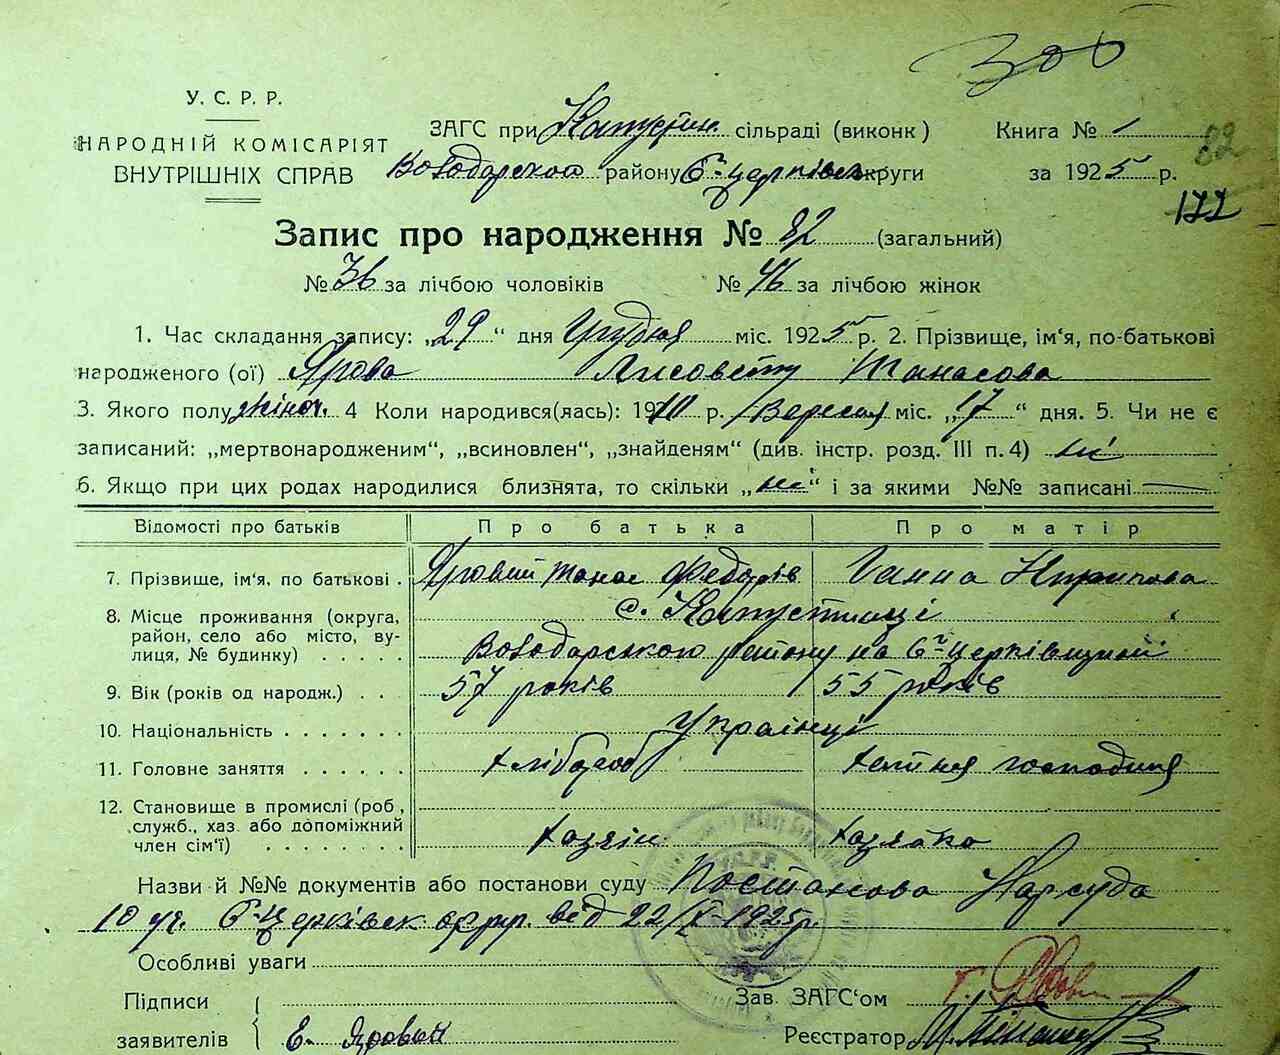 300
У. С. Р. Р.
НАРОДНІЙ КОМІСАРІЯТ
ВНУТРІШНІХ СПРАВ
ЗАГС при Капустин. сільраді (виконк)
Володарского району Б-церківськ округи
Книга № 1
82
за 1925 р.
177
Запис про народження № 82 (загальний)
№ 36 за лічбою чоловіків № 46 за лічбою жінок
1. Час складання запису: „29“ дня Грудня міс. 1925 р. 2. Прізвище, ім‘я, по-батькові
народженого (ої) Ярова Лисовету Танасова
3. Якого полу жіноч. 4 Коли народився(лась): 1910 р. Вересня міс. „17“ дня. 5. Чи не є
записаний: „мертвонародженим“, „всиновлен“, „знайденям“ (див. інстр. розд. III п. 4) ні
6. Якщо при цих родах народилися близнята, то скільки „ні“ і за якими №№ записані —
Відомості про батьків Про батька Про матір
7. Прізвище, ім‘я, по батькові . Яровий Танас Федорів Ганна
8. Місце проживання (округа, с. Капустинці
район, село або місто, ву-
лиця, № будинку) . . . . . Володарського району на Б-церківщині
9. Вік (років од народж.) . . . 57 років 55 років
10. Національність . . . . . . . Українці
11. Головне заняття . . . . . . хлібороб хатня господиня
12. Становище в промислі (роб.,
служб., хаз. або допоміжний
член сім‘ї) . . . . . . . . хазяїн хазяйка
Назви й №№ документів або постанови суду Постанова Нарсуда
10 уч. Б-Церківськ окр. від 22/X-1925 р.
Особливі уваги
Підписи
заявителів Е. Яровая
Зав. ЗАГС‘ом
Реєстратор